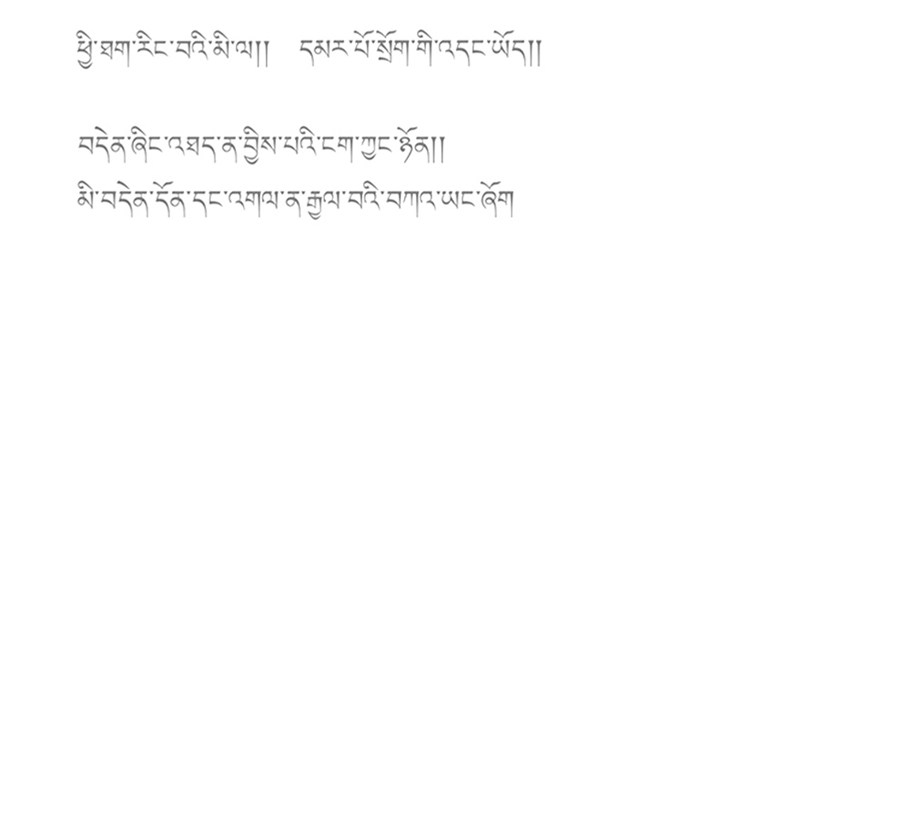 ཕྱི་ཐག་རིང་བའི་མི་ལ།། དམར་པོ་སྲོག་གི་འདང་ཡོད།།
བདེན་ཞིང་འཐད་ན་བྱིས་པའི་ངག་ཀྱང་ཉོན།།
མི་བདེན་དོན་དང་འགལ་ན་རྒྱལ་བའི་བཀའ་ཡང་ཞོག